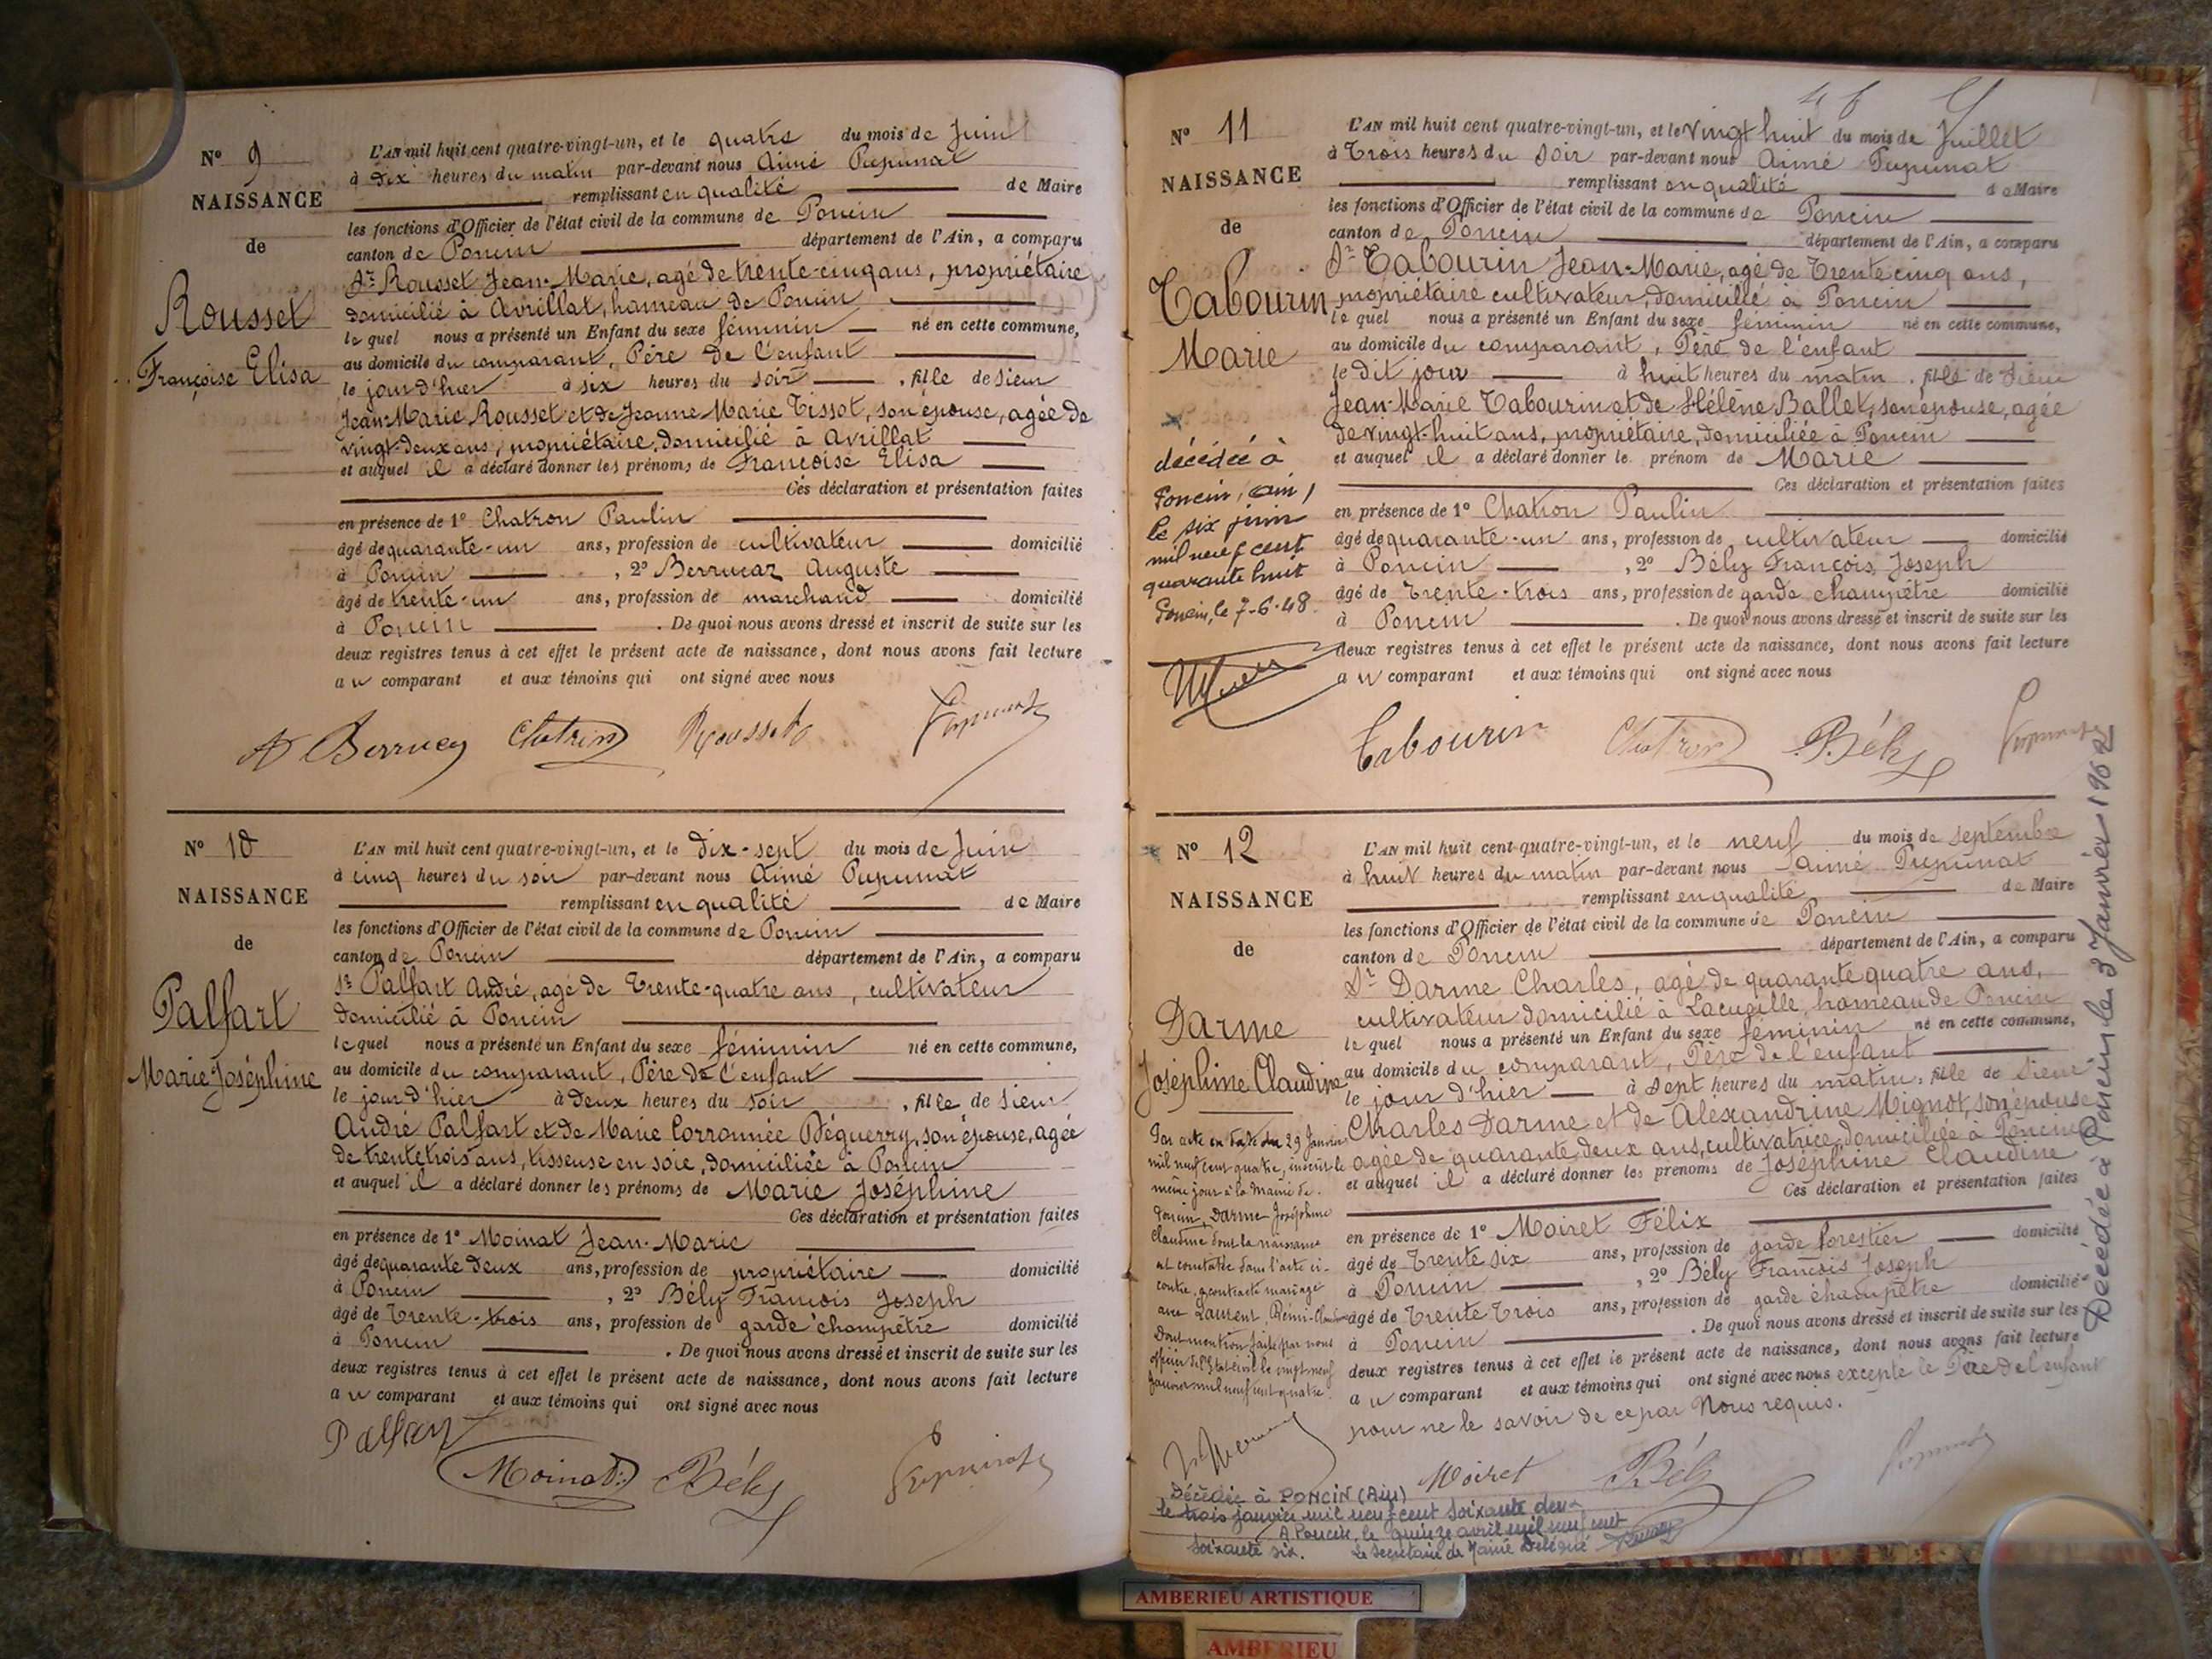 N° 9
NAISSANCE
de
Rousset
Françoise Elisa
L'AN mil huit cent quatre-vingt-un, et le quatre du mois de Juin
à dix heures du matin par-devant nous Aimé Pupunat
remplissant en qualité de Maire
les fonctions d'Officier de l'état civil de la commune de Poncin
canton de Poncin département de l'Ain, a comparu
Sr Rousset Jean-Marie, agé de trente-cinq ans, propriétaire
domicilié à Avrillat, hameau de Poncin
lequel nous a présenté un Enfant du sexe féminin né en cette commune,
au domicile du comparant, Père de l'enfant
le jour d'hier à six heures du soir, fille de sieur
Jean-Marie Rousset et de Jeanne Marie Tissot, son épouse, agée de
vingt-deux ans, propriétaire, domicilié à Avrillat
et auquel il a déclaré donner les prénoms de Françoise Elisa
Ces déclaration et présentation faites
en présence de 1° Chatron Paulin
âgé de quarante-un ans, profession de cultivateur domicilié
à Poncin, 2° Berrucaz Auguste
âgé de trente-un ans, profession de marchand domicilié
à Poncin. De quoi nous avons dressé et inscrit de suite sur les
deux registres tenus à cet effet le présent acte de naissance, dont nous avons fait lecture
au comparant et aux témoins qui ont signé avec nous
Chatron Rousset
N° 10
NAISSANCE
de
Palfart
Marie Joséphine
L'AN mil huit cent quatre-vingt-un, et le dix-sept du mois de Juin
à cinq heures du soir par-devant nous Aimé Pupunat
remplissant en qualité de Maire
les fonctions d'Officier de l'état civil de la commune de Poncin
canton de Poncin département de l'Ain, a comparu
Sr Palfart André, agé de Trente-quatre ans, cultivateur
domicilié à Poncin
lequel nous a présenté un Enfant du sexe féminin né en cette commune,
au domicile du comparant, Père de l'enfant
le jour d'hier à deux heures du soir, fille de sieur
André Palfart et de Marie Corronnée Béguerry, son épouse, agée
de trente trois ans, tisseuse en soie, domiciliée à Poncin
et auquel il a déclaré donner les prénoms de Marie Joséphine
Ces déclaration et présentation faites
en présence de 1° Moinat Jean-Marie
âgé de quarante deux ans, profession de propriétaire domicilié
à Poncin, 2° Bély François Joseph
âgé de Trente-trois ans, profession de garde champêtre domicilié
à Poncin. De quoi nous avons dressé et inscrit de suite sur les
deux registres tenus à cet effet le présent acte de naissance, dont nous avons fait lecture
au comparant et aux témoins qui ont signé avec nous
Palfart
Moinat Bély
N° 11
NAISSANCE
de
Tabourin
Marie
décédée à
Poncin, (Ain)
le six juin
mil neuf cent
quarante huit
Poncin, le 7-6-48
L'AN mil huit cent quatre-vingt-un, et le Vingt huit du mois de Juillet
à Trois heures du soir par-devant nous Aimé Pupunat
remplissant en qualité de Maire
les fonctions d'Officier de l'état civil de la commune de Poncin
canton de Poncin département de l'Ain, a comparu
Sr Tabourin Jean-Marie, agé de Trente cinq ans,
propriétaire cultivateur, domicilié à Poncin
lequel nous a présenté un Enfant du sexe féminin né en cette commune,
au domicile du comparant, Père de l'enfant
le dit jour à huit heures du matin, fille de sieur
Jean-Marie Tabourin et de Hélène Ballet, son épouse, agée
de vingt-huit ans, propriétaire, domiciliée à Poncin
et auquel il a déclaré donner le prénom de Marie
Ces déclaration et présentation faites
en présence de 1° Chatron Paulin
âgé de quarante-un ans, profession de cultivateur domicilié
à Poncin, 2° Bély François Joseph
âgé de Trente-trois ans, profession de garde champêtre domicilié
à Poncin. De quoi nous avons dressé et inscrit de suite sur les
deux registres tenus à cet effet le présent acte de naissance, dont nous avons fait lecture
au comparant et aux témoins qui ont signé avec nous
Tabourin Chatron Bély
N° 12
NAISSANCE
de
Darme
Joséphine Claudine
Par acte en date du 29 Janvier
mil neuf cent quatre, inscrit le
même jour à la Mairie de
Poncin, Darme Joséphine
Claudine dont la naissance
est constatée dans l'acte ci-
contre, a contracté mariage
avec Laurent Rémi
Dont mention faite par nous
officier de l'Etat civil le vingt neuf
Janvier mil neuf cent quatre
L'AN mil huit cent quatre-vingt-un, et le neuf du mois de septembre
à huit heures du matin par-devant nous Aimé Pupunat
remplissant en qualité de Maire
les fonctions d'Officier de l'état civil de la commune de Poncin
canton de Poncin département de l'Ain, a comparu
Sr Darme Charles, agé de quarante quatre ans,
cultivateur domicilié à Lacueille, hameau de Poncin
lequel nous a présenté un Enfant du sexe féminin né en cette commune,
au domicile du comparant, Père de l'enfant
le jour d'hier à sept heures du matin, fille de sieur
Charles Darme et de Aléxandrine Mignot, son épouse
agée de quarante deux ans, cultivatrice, domiciliée à Poncin
et auquel il a déclaré donner les prénoms de Joséphine Claudine
Ces déclaration et présentation faites
en présence de 1° Moiret Félix
âgé de Trente six ans, profession de garde forestier domicilié
à Poncin, 2° Bély François Joseph
âgé de Trente Trois ans, profession de garde champêtre domicilié
à Poncin. De quoi nous avons dressé et inscrit de suite sur les
deux registres tenus à cet effet le présent acte de naissance, dont nous avons fait lecture
au comparant et aux témoins qui ont signé avec nous excepté le Père de l'enfant
pour ne le savoir de ce par Nous requis.
Moiret Bély
Décédée à PONCIN (Ain)
le trois janvier mil neuf cent soixante deux
A Poncin, le quinze avril mil neuf cent
soixante six. Le Secrétaire de Mairie Délégué
Décédée à Poncin le 3 Janvier 1962
AMBERIEU ARTISTIQUE
AMBERIEU